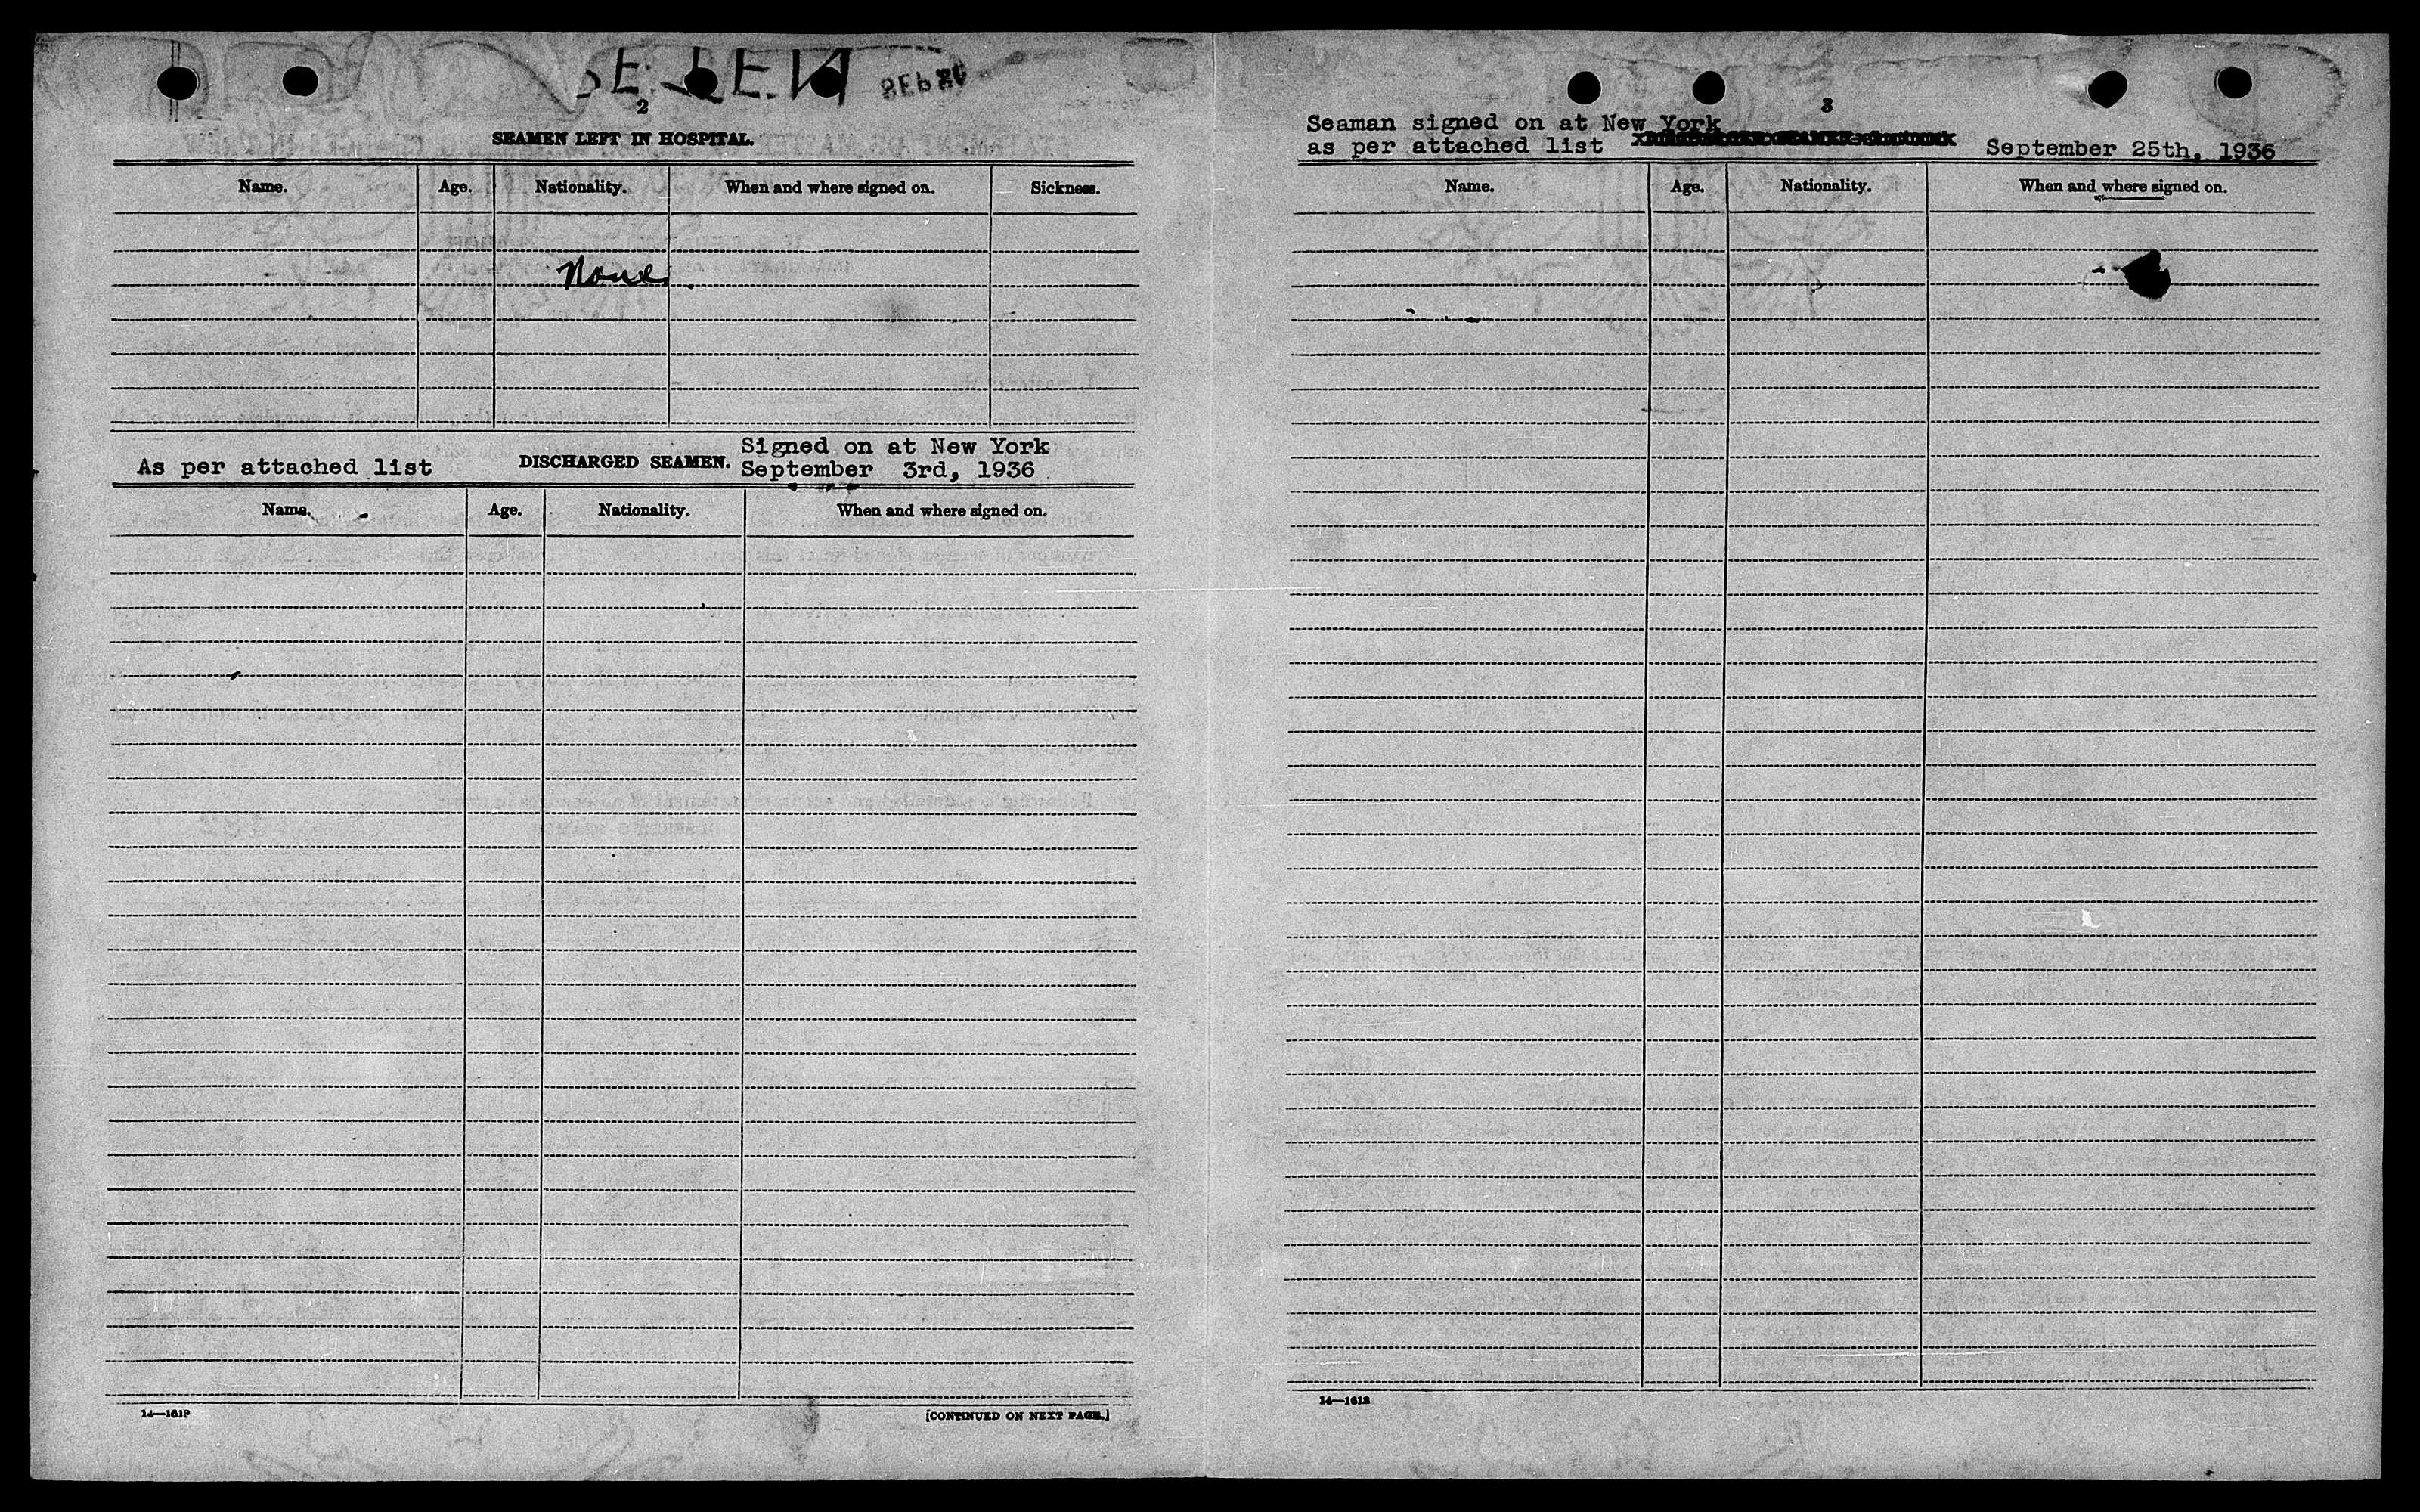 2
SEAMEN LEFT IN HOSPITAL.
Name. Age. Nationality. When and where signed on. Sickness.
None
As per attached list DISCHARGED SEAMEN. Signed on at New York
September 3rd, 1936
Name. Age. Nationality. When and where signed on.
14—1612
[CONTINUED ON NEXT PAGE.]
3
Seaman signed on at New York
as per attached list September 25th, 1936
Name. Age. Nationality. When and where signed on.
14—1612